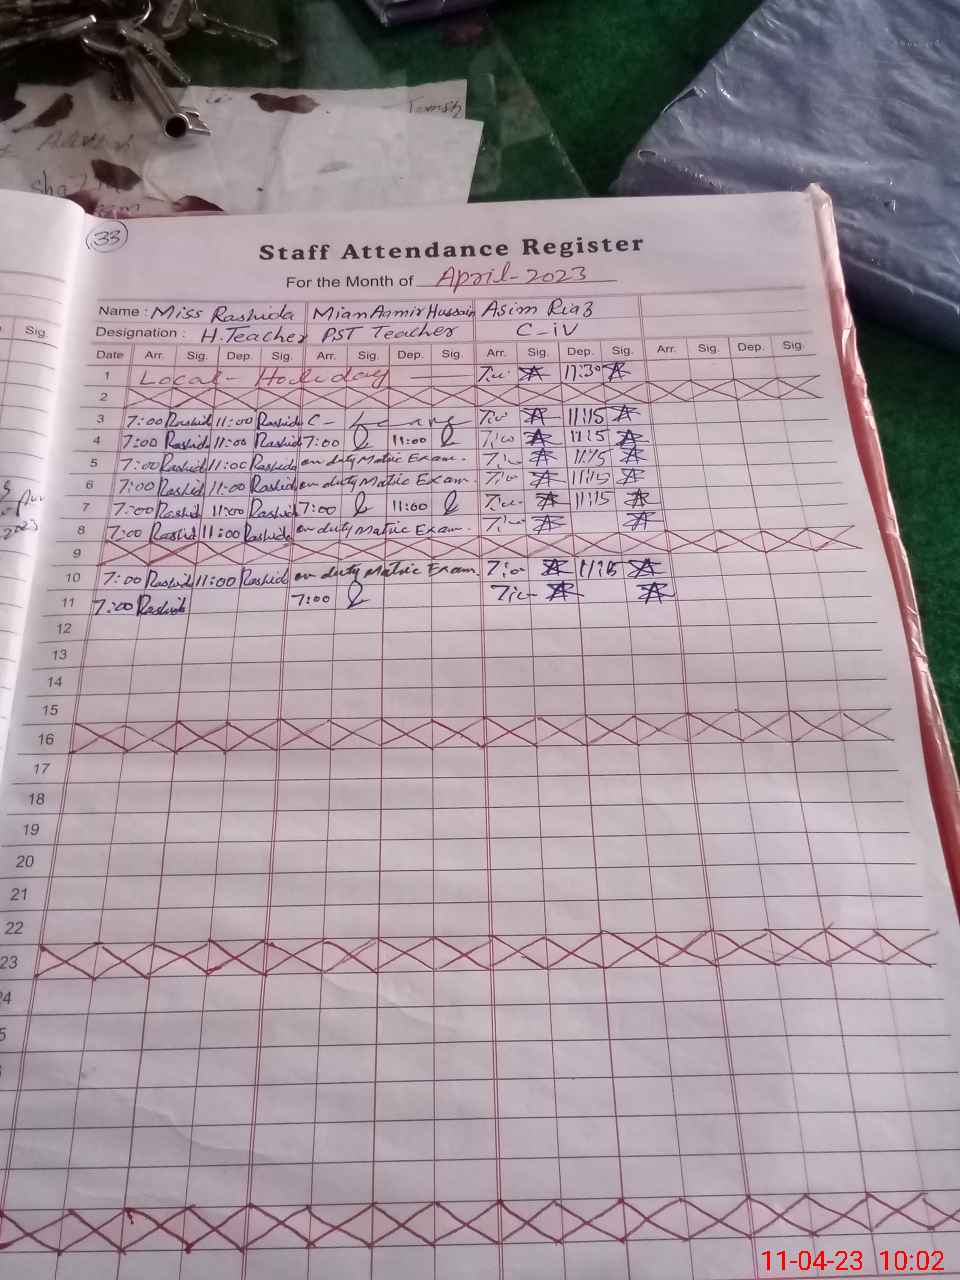 Tamsh
sha
33
Staff Attendance Register
For the Month of April-2023
Name: Miss Rashida Mian Aamir Hussain Asim Riaz
Designation: H.Teacher PST Teacher C-iV
Sig. Date Arr. Sig. Dep. Sig. Arr. Sig. Dep. Sig. Arr. Sig. Dep. Sig. Arr. Sig. Dep. Sig.
1 Local- Holiday 11:30
2
3 7:00 Rashid 11:00 Rashid C- 11:15
4 7:00 Rashid 11:00 Rashid 7:00 11:00 7:00 11:15
5 7:00 Rashid 11:00 Rashida on duty Matric Exam. 11:15
6 7:00 Rashid 11:00 Rashid on duty Matric Exam. 11:15
7 7:00 Rashid 11:00 Rashid 7:00 11:00 11:15
8 7:00 Rashid 11:00 Rashida on duty Matric Exam.
9
10 7:00 Rashid 11:00 Rashid on duty Matric Exam. 7:00 11:15
11 7:00 Rashid 7:00
12
13
14
15
16
17
18
19
20
21
22
23
11-04-23 10:02